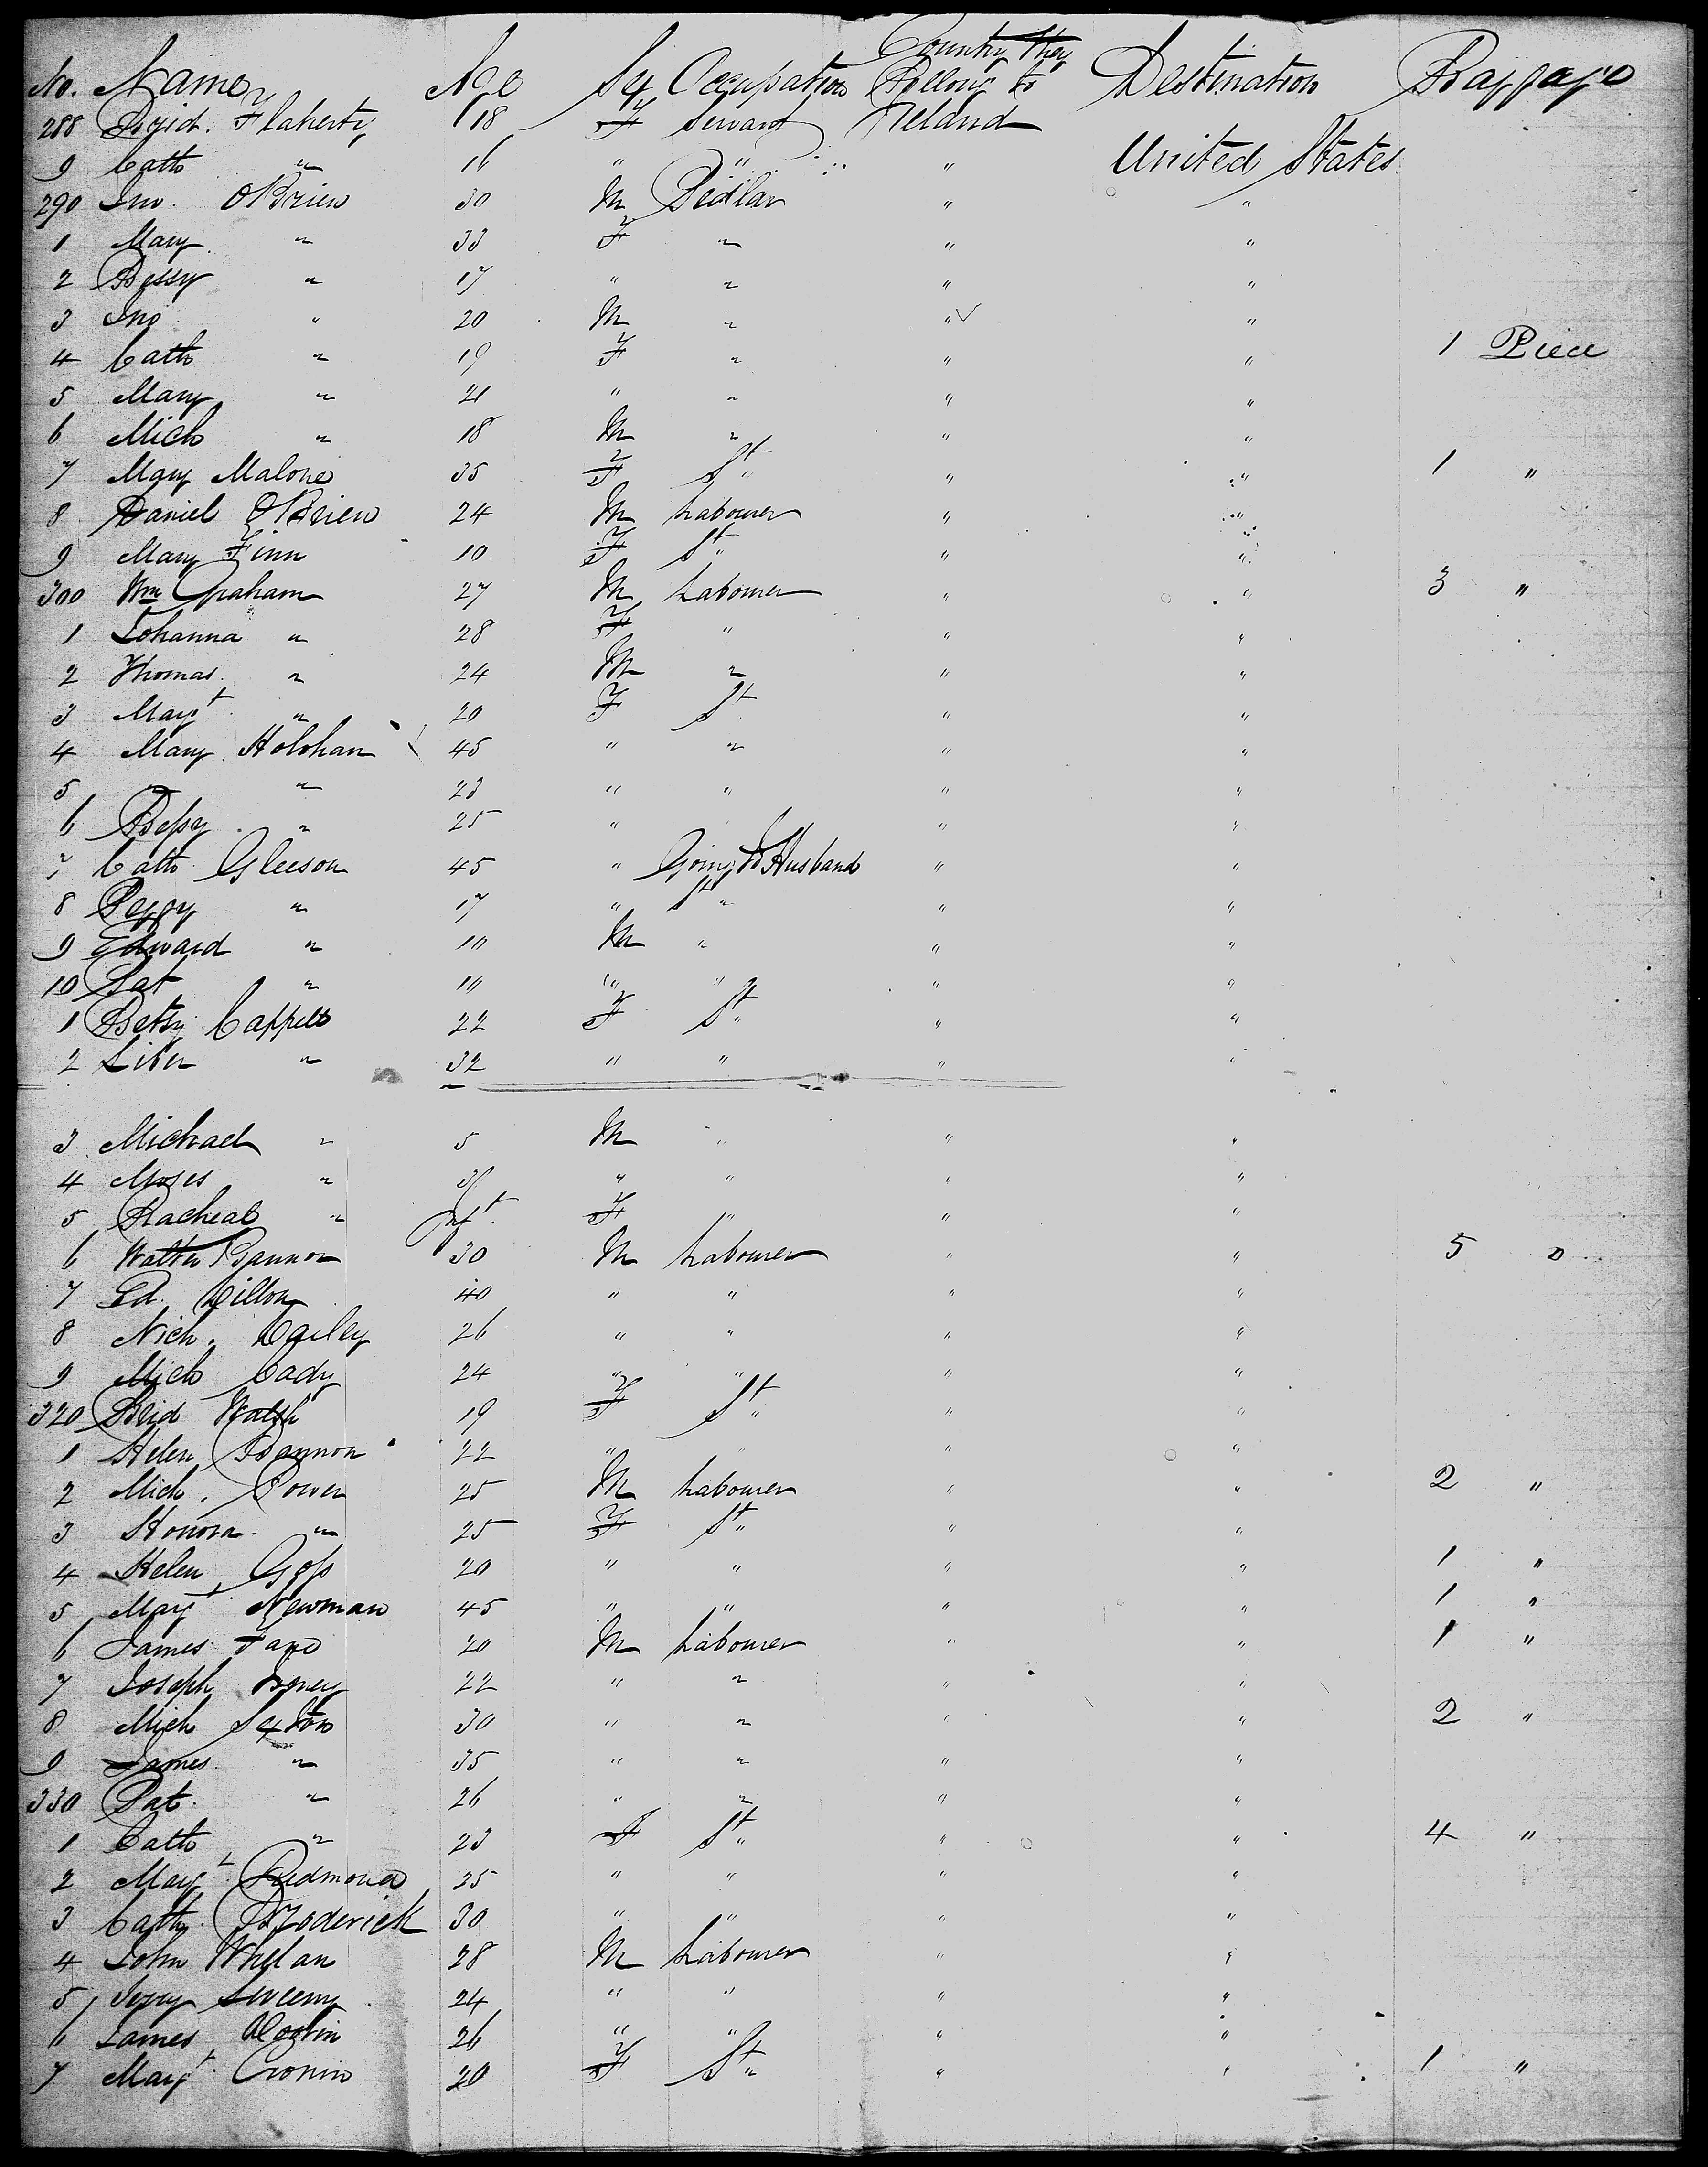 No. Name Age Sex Occupation Country they Belong to Destination Baggage
288 Brid. Flaherty 18 F Servant Ireland
9 Cath " 16 " " " United States
290 Jno. OBrien 30 M Pedlar " "
1 Mary " 33 F " " "
2 Bessy " 17 " " " "
3 Jno " 20 M " " "
4 Cath " 19 F " " " 1 Piece
5 Mary " 21 " " " "
6 Mich " 18 M " " "
7 Mary Malone 35 F St " " 1 "
8 Daniel OBrien 24 M Labourer " "
9 Mary Finn 10 F St " "
300 Wm Graham 27 M Labourer " " 3 "
1 Johanna " 28 F " " "
2 Thomas " 24 M " " "
3 Margt " 20 F St " "
4 Mary Holohan 45 " " " "
5 " " 23 " " " "
6 Bessy " 25 " " "
7 Cath Gleeson 45 " Going to Husband " "
8 Peggy " 17 " St " "
9 Edward " 10 M " " "
10 Pat " 11 " " " "
1 Betsy Cappell 22 F St " "
2 " 32 " " " "
3 Michael " 5 M " " "
4 Moses " 3 " " " "
5 Racheal " Inft F " " "
6 Walter Bannon 30 M Labourer " " 5 "
7 Ed. Dillon 40 " " " "
8 Nich. Dailey 26 " " " "
9 Mich Cady 24 " " " "
320 Brid Walsh 19 F St " "
1 Helen Bannon 22 " " " "
2 Mich. Power 25 M Labourer " " 2 "
3 Honora " 25 F St " "
4 Helen Goss 20 " " " " 1 "
5 Margt Newman 45 " " " " 1 "
6 James 20 M Labourer " " 1 "
7 Joseph 22 " " " "
8 Mich Sexton 30 " " " " 2 "
9 James " 35 " " " "
330 Pat " 26 " " " "
1 Cath " 23 F St " " 4 "
2 Margt Redmond 25 " " " "
3 Cath. Broderick 30 " " " "
4 John Whelan 28 M Labourer " "
5 Jerry Sweeny 24 " " " "
6 James 26 " " " "
7 Margt Cronin 20 F St " " 1 "